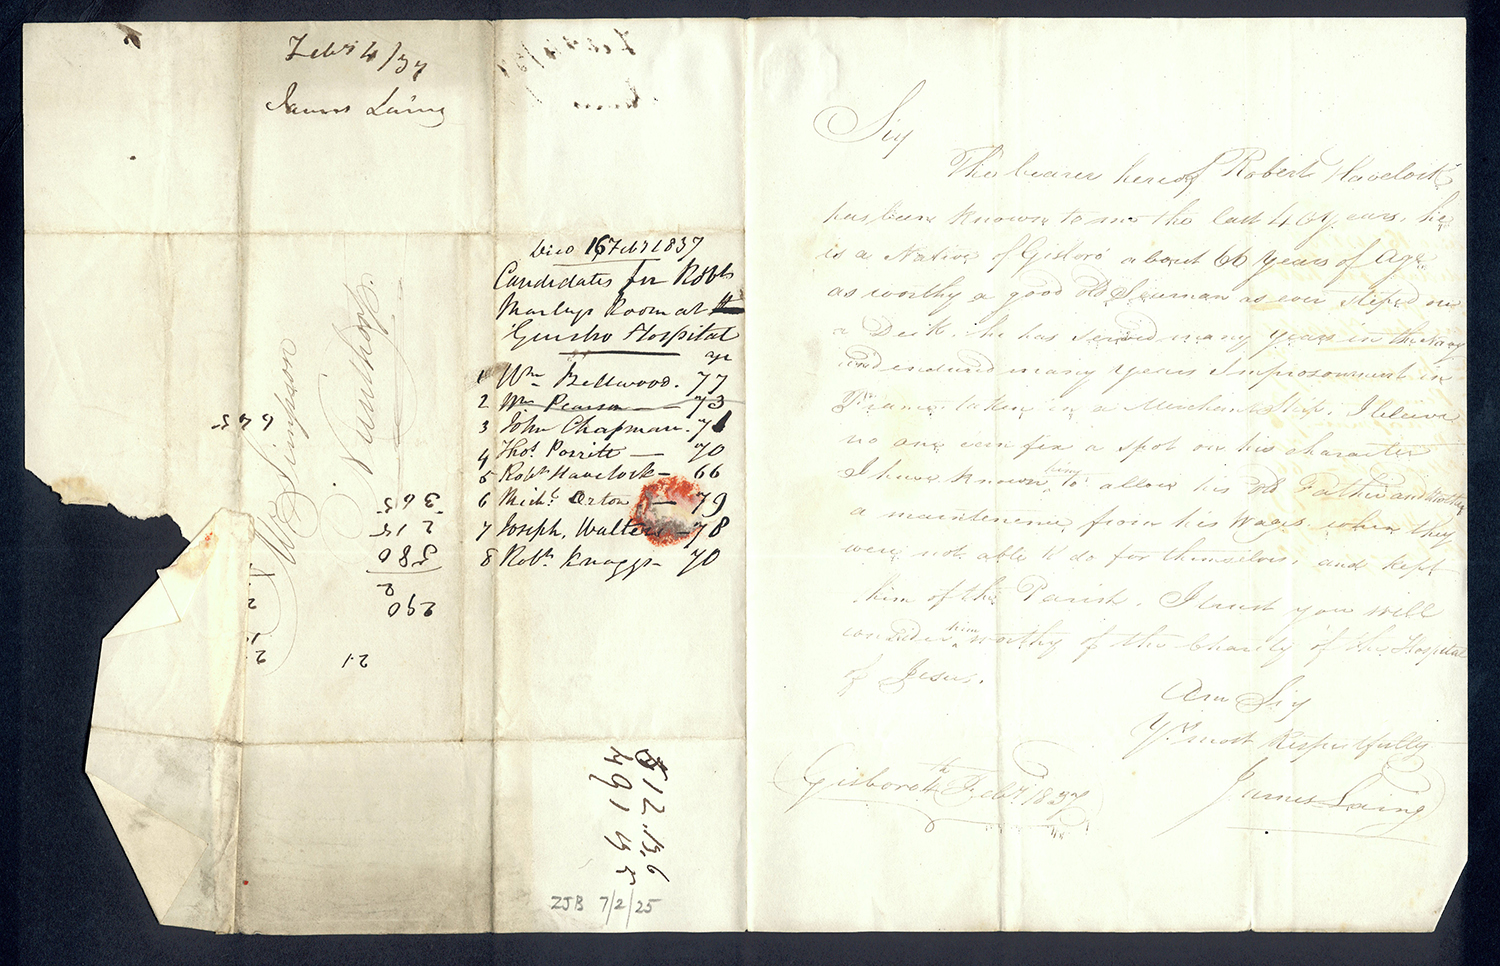 Febry 4/37
James Laing
Died 16 Febry 1837
Candidates for Robts
Marleys Room at
Guisbro Hospital
yr
1 Wm Bellwood. 77
2 Wm Pearson 73
3 John Chapman. 71
4 Thos Porritt — 70
5 Robt Havelock — 66
6 Michl Orton — 79
7 Joseph, Walters — 78
8 Robt Knaggs — 70
Wm Simpson
Nunthorp.
645
365
215
580
2
290
21
512.13.6
ZJB 7/2/25
Sir
The bearer hereof Robert Havelock
has been known to me the last 40 Years. he
is a Native of Gisbro' about 66 Years of Age
as worthy a good old Seaman as ever steped on
a Deck. he has served many years in the Navy
and endured many years Imprisonment in
France. taken in a Merchant Ship. I beleive
no one can fix a spot on his character
I have known him to allow his old Father and Mother
a maintenence from his Wages when they
were not able to do for themselves, and kept
him of the Parish. I trust you will
consider him worthy of the Charity of the Hospital
of Jesus.
Am Sir
Yrs most Respectfully
James Laing
Gisboro 4th Febry 1837